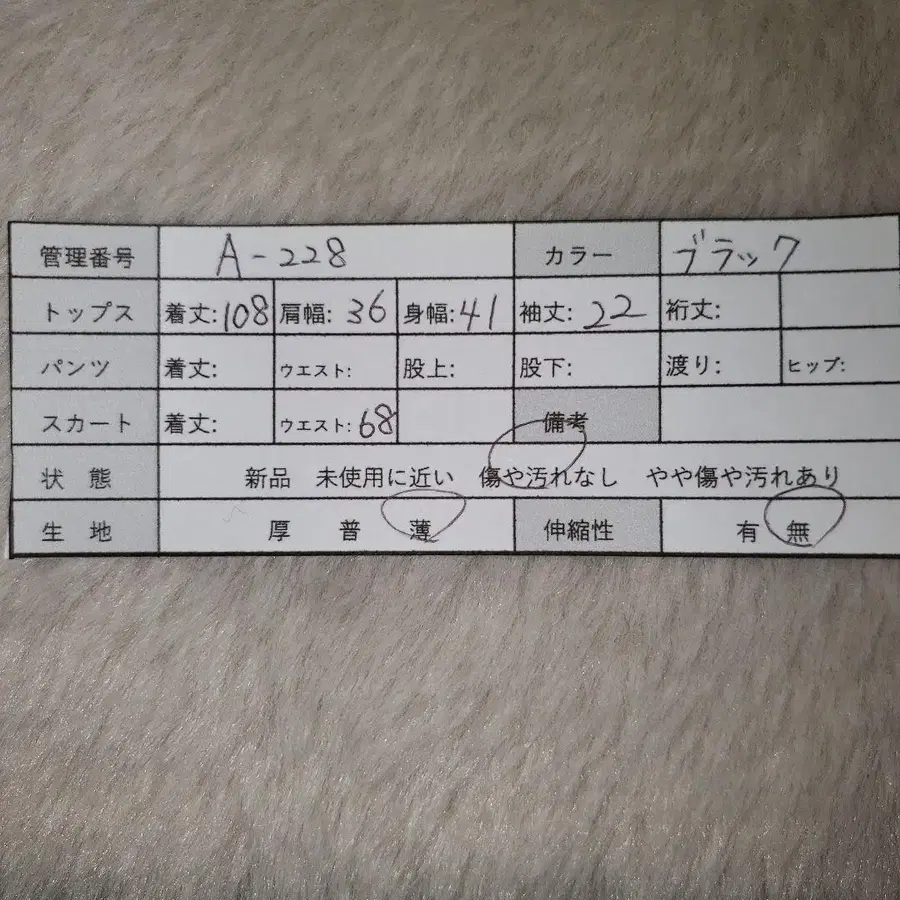 管理番号 A-228 カラー ブラック
トップス 着丈:108 肩幅:36 身幅:41 袖丈:22 裄丈:
パンツ 着丈: ウエスト: 股上: 股下: 渡り: ヒップ:
スカート 着丈: ウエスト:68 備考
状態 新品 未使用に近い 傷や汚れなし やや傷や汚れあり
生地 厚 普 薄 伸縮性 有 無